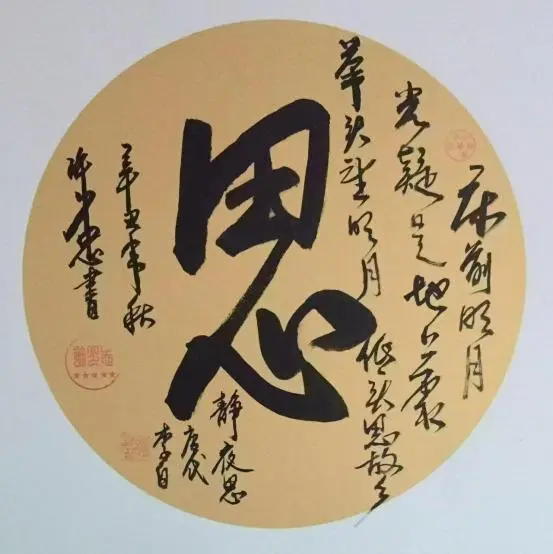 床前明月
光疑是地上霜
举头望明月 低头思故乡
思
静夜思
唐代
李白
辛丑年秋
忠書